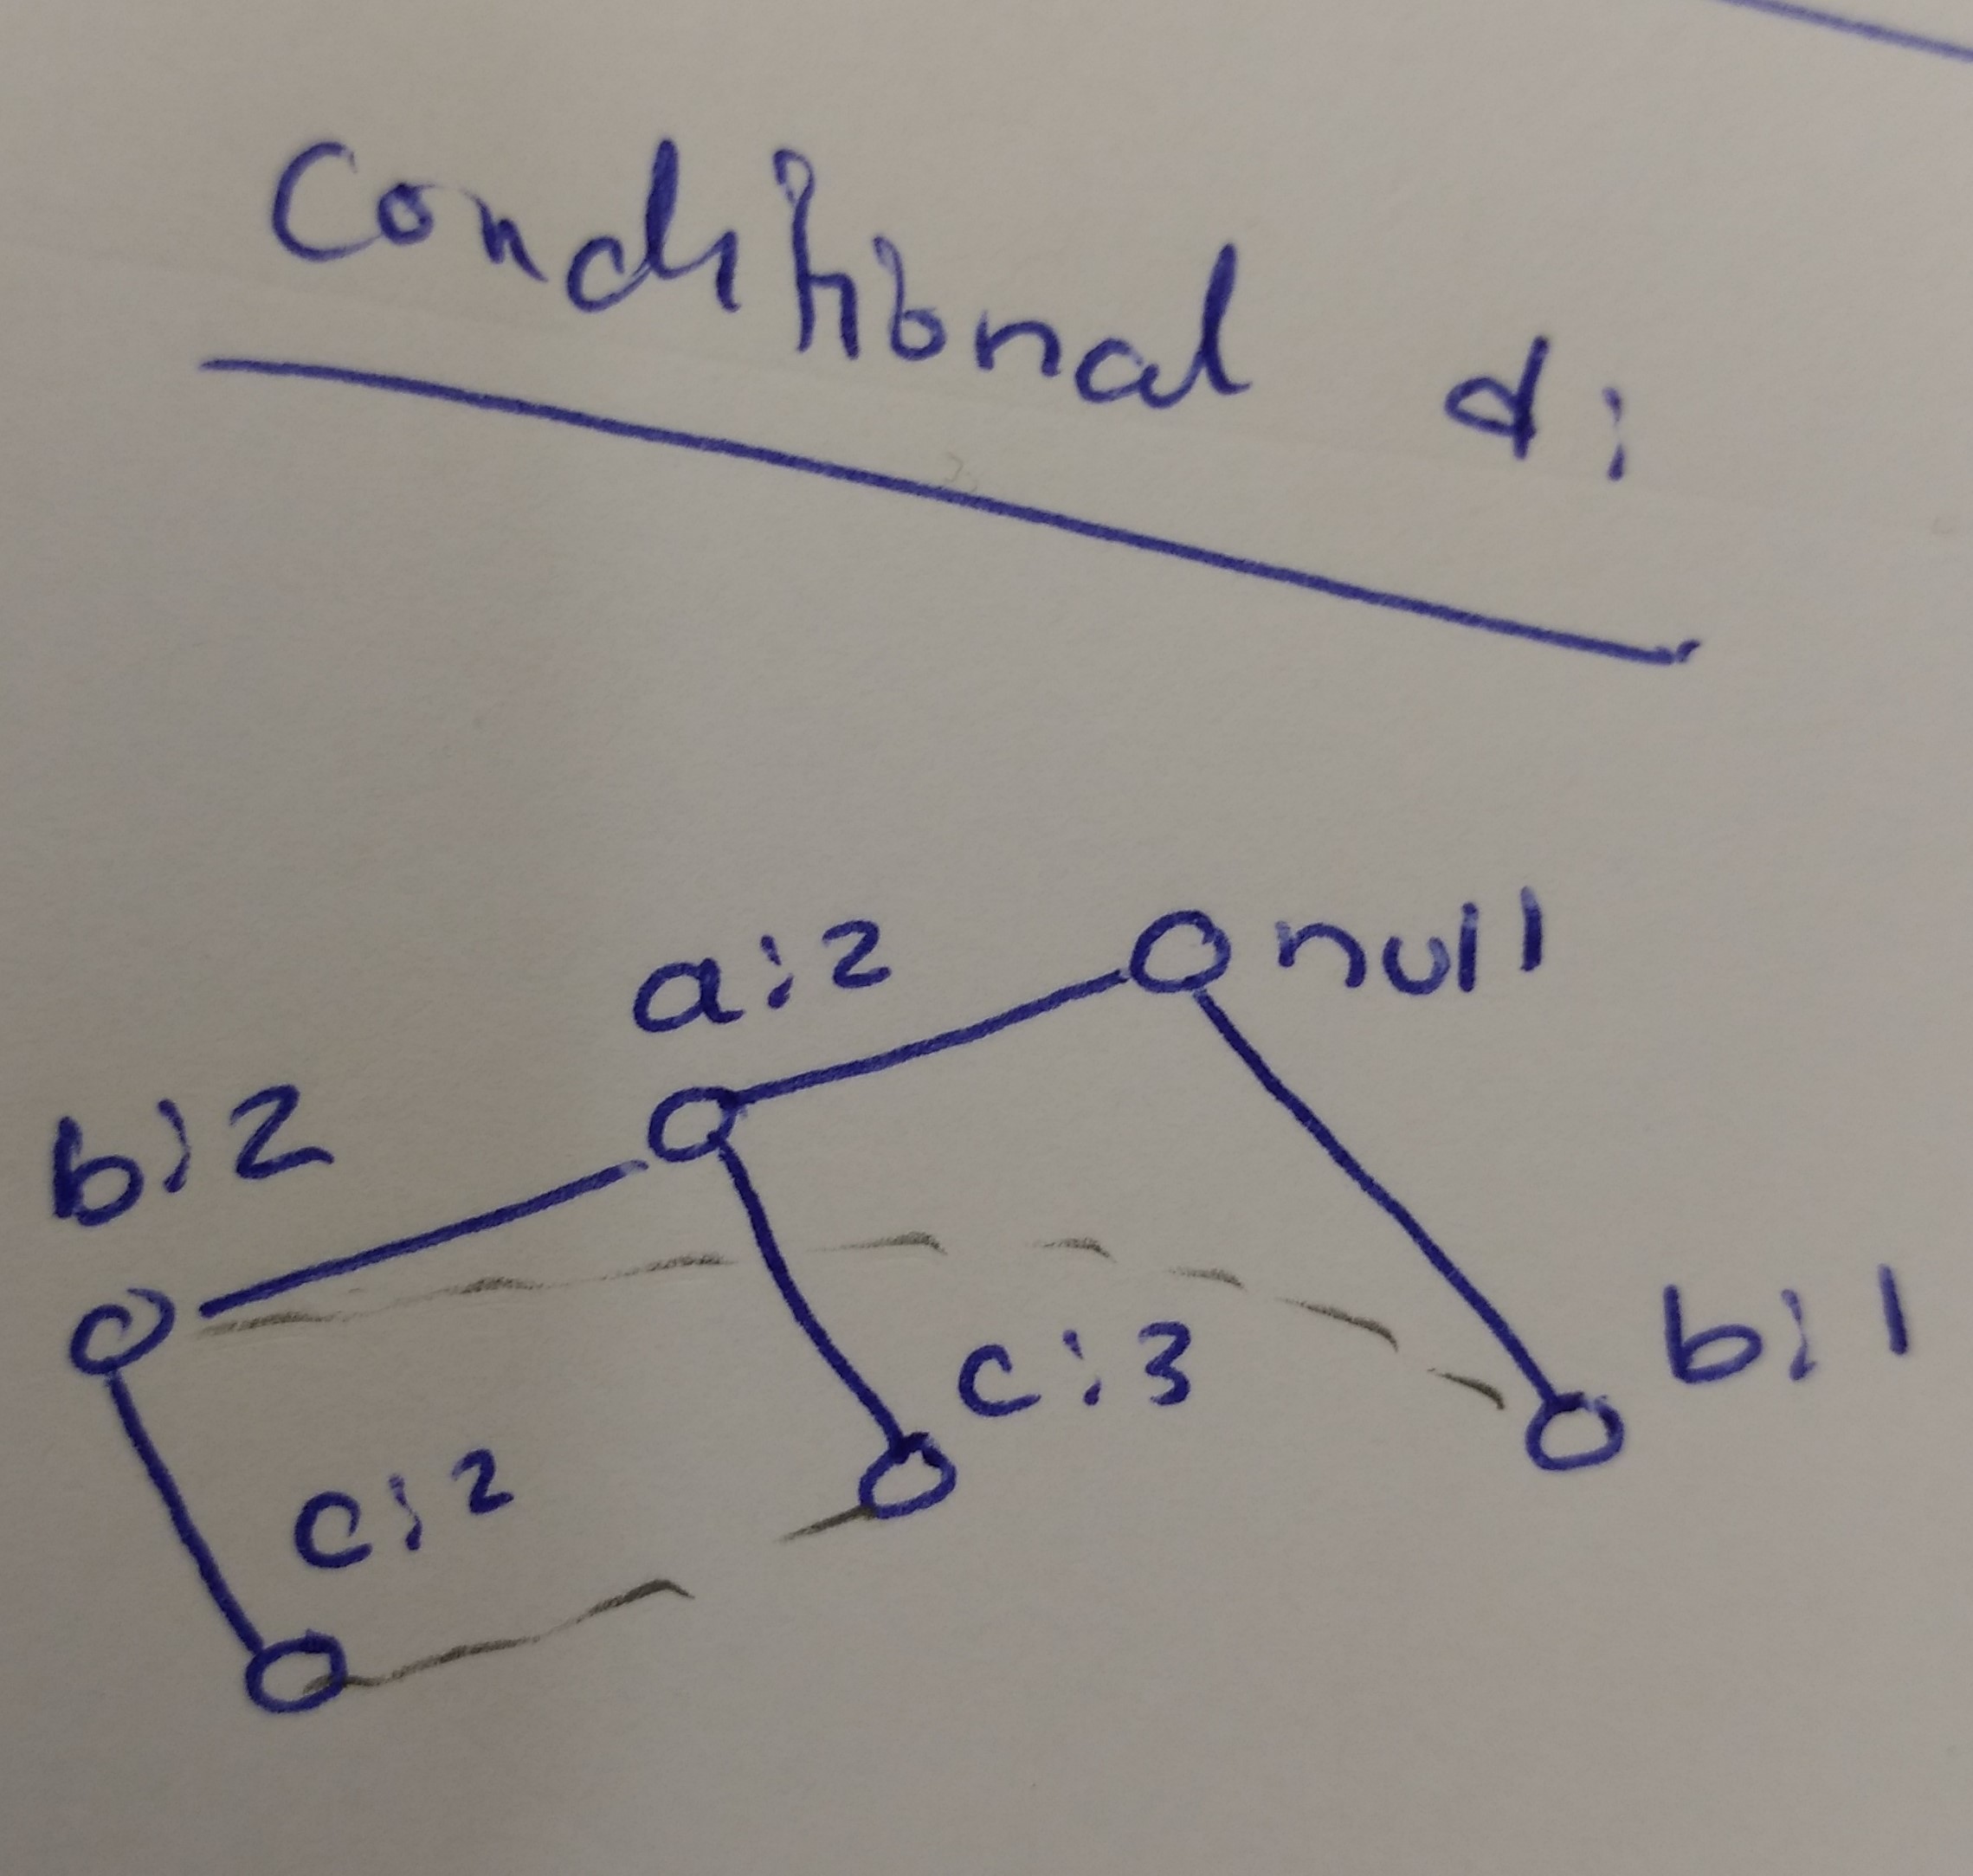 Conditional d:
a:2
null
b:2
c:3
b:1
c:2